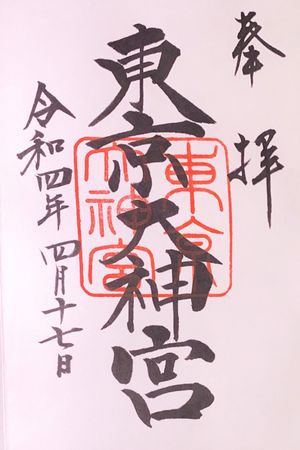 奉拝
東京大神宮
東京大神宮
令和四年 四月十七日